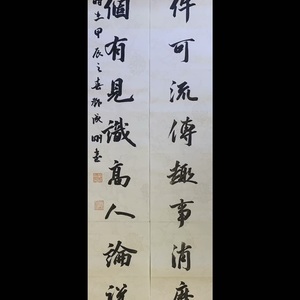 件可流傳趣事消磨
個有見識高人論説
時在甲辰之春鄧成明書